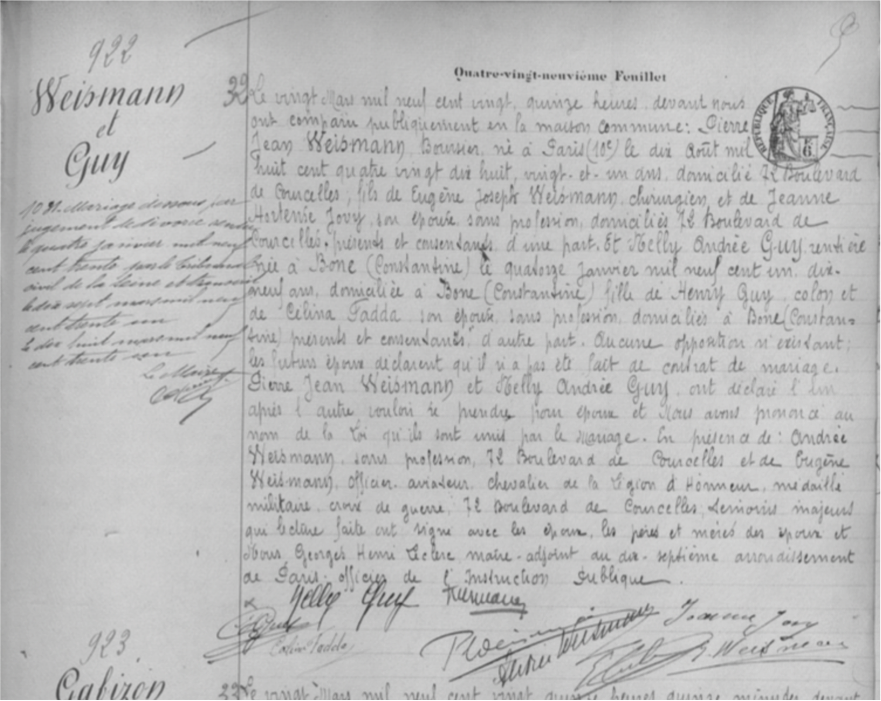 922
Weismann
et
Guy
1031. Mariage dissous par
jugement de divorce rendu
le quatre janvier mil neuf
cent trente par le tribunal
civil de la Seine et transcrit
le dix sept mars mil neuf
cent trente un
le dix huit mars mil neuf
cent trente un
Le Maire
Quatre-vingt-neuvième Feuillet
RÉPUBLIQUE FRANÇAISE
Le vingt Mars mil neuf cent vingt, quinze heures, devant nous
ont comparu publiquement en la maison commune: Pierre
Jean Weismann, Boursier, né à Paris (10e) le dix Août mil
huit cent quatre vingt dix huit, vingt-et-un ans, domicilié 72 Boulevard
de Courcelles, fils de Eugène Joseph Weismann, chirurgien, et de Jeanne
Hortense Jovy, son épouse, sans profession, domiciliés 72 Boulevard de
Courcelles, présents et consentants, d'une part. Et Nelly Andrée Guy, rentière
née à Bone (Constantine) le quatorze janvier mil neuf cent un, dix-
neuf ans, domiciliée à Bone (Constantine) fille de Henry Guy, colon et
de Celina Tadda, son épouse, sans profession, domiciliés à Bone (Constan-
tine) présents et consentants, d'autre part. Aucune opposition n'existant;
les futurs époux déclarent qu'il n'a pas été fait de contrat de mariage.
Pierre Jean Weismann et Nelly Andrée Guy, ont déclaré l'un
après l'autre vouloir se prendre pour époux et Nous avons prononcé au
nom de la Loi qu'ils sont unis par le Mariage. En présence de: Andrée
Weismann, sans profession, 72 Boulevard de Courcelles et de Eugène
Weismann, officier-aviateur, chevalier de la Légion d'Honneur, médaillé
militaire, croix de guerre, 72 Boulevard de Courcelles, témoins majeurs
qui lecture faite ont signé avec les époux, les pères et mères des époux et
Nous Georges Henri Leclerc maire-adjoint du dix-septième arrondissement
de Paris. officier de l'Instruction Publique.
Nelly Guy
Guy
Celina Tadda
Andrée Weismann
Jeanne Jovy
Weismann
923
Gabizon
Le vingt Mars mil neuf cent vingt quinze heures quinze minutes devant